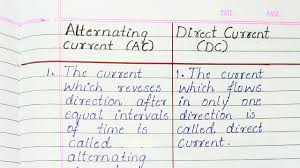 DATE
PAGE
Alternating Current (AC)
Direct Current (DC)
1. The current which reveses direction after equal intervals of time is called alternating
1. The current which flows in only one direction is called direct current.